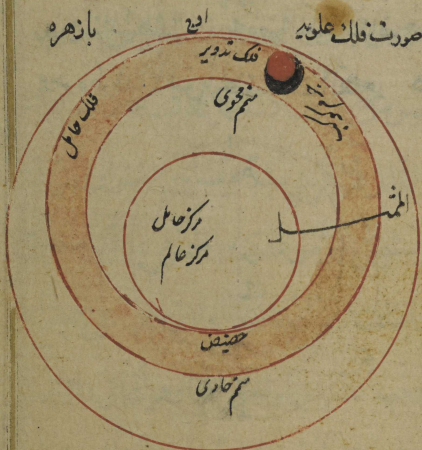 صورت فلک علویه بازهره
اوج
فلک تدویر
متمم محوی
فلک حامل
الممثل
مرکز حامل
مرکز عالم
حضیض
متمم حاوی